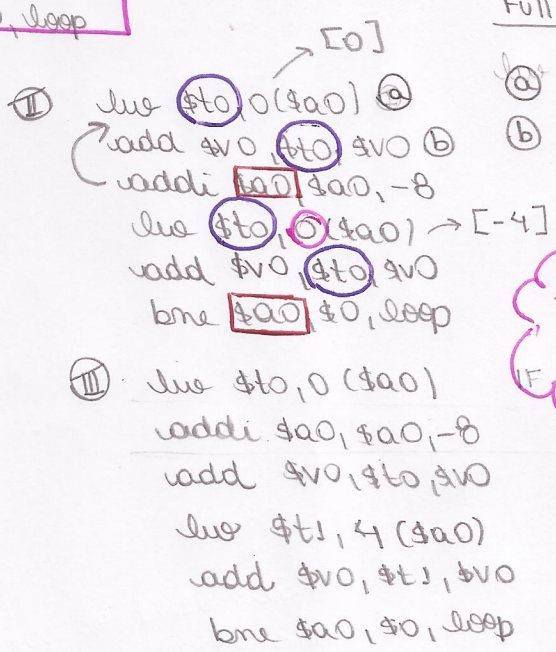 , loop
Full
[0]
II lw $t0, 0($a0) a
a
add $v0, $t0, $v0 b
b
addi $a0, $a0, -8
lw $t0, 0($a0) → [-4]
add $v0, $t0, $v0
bne $a0, $0, loop
IF
III lw $t0, 0($a0)
addi $a0, $a0, -8
add $v0, $t0, $v0
lw $t1, 4($a0)
add $v0, $t1, $v0
bne $a0, $0, loop